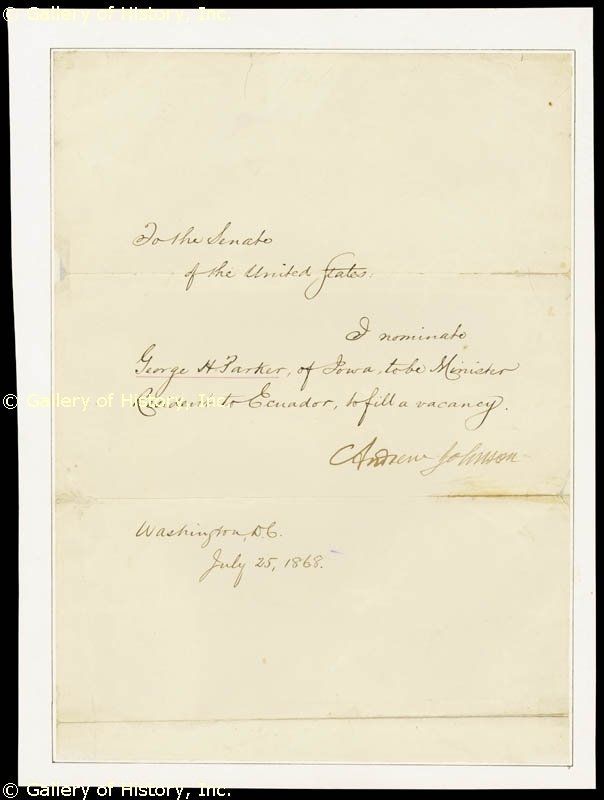 © Gallery of History, Inc.
To the Senate
of the United States:
I nominate
George H Parker, of Iowa, to be Minister
© Gallery of History, Inc.
Resident to Ecuador, to fill a vacancy.
Andrew Johnson
Washington, D.C.
July 25, 1868.
© Gallery of History, Inc.